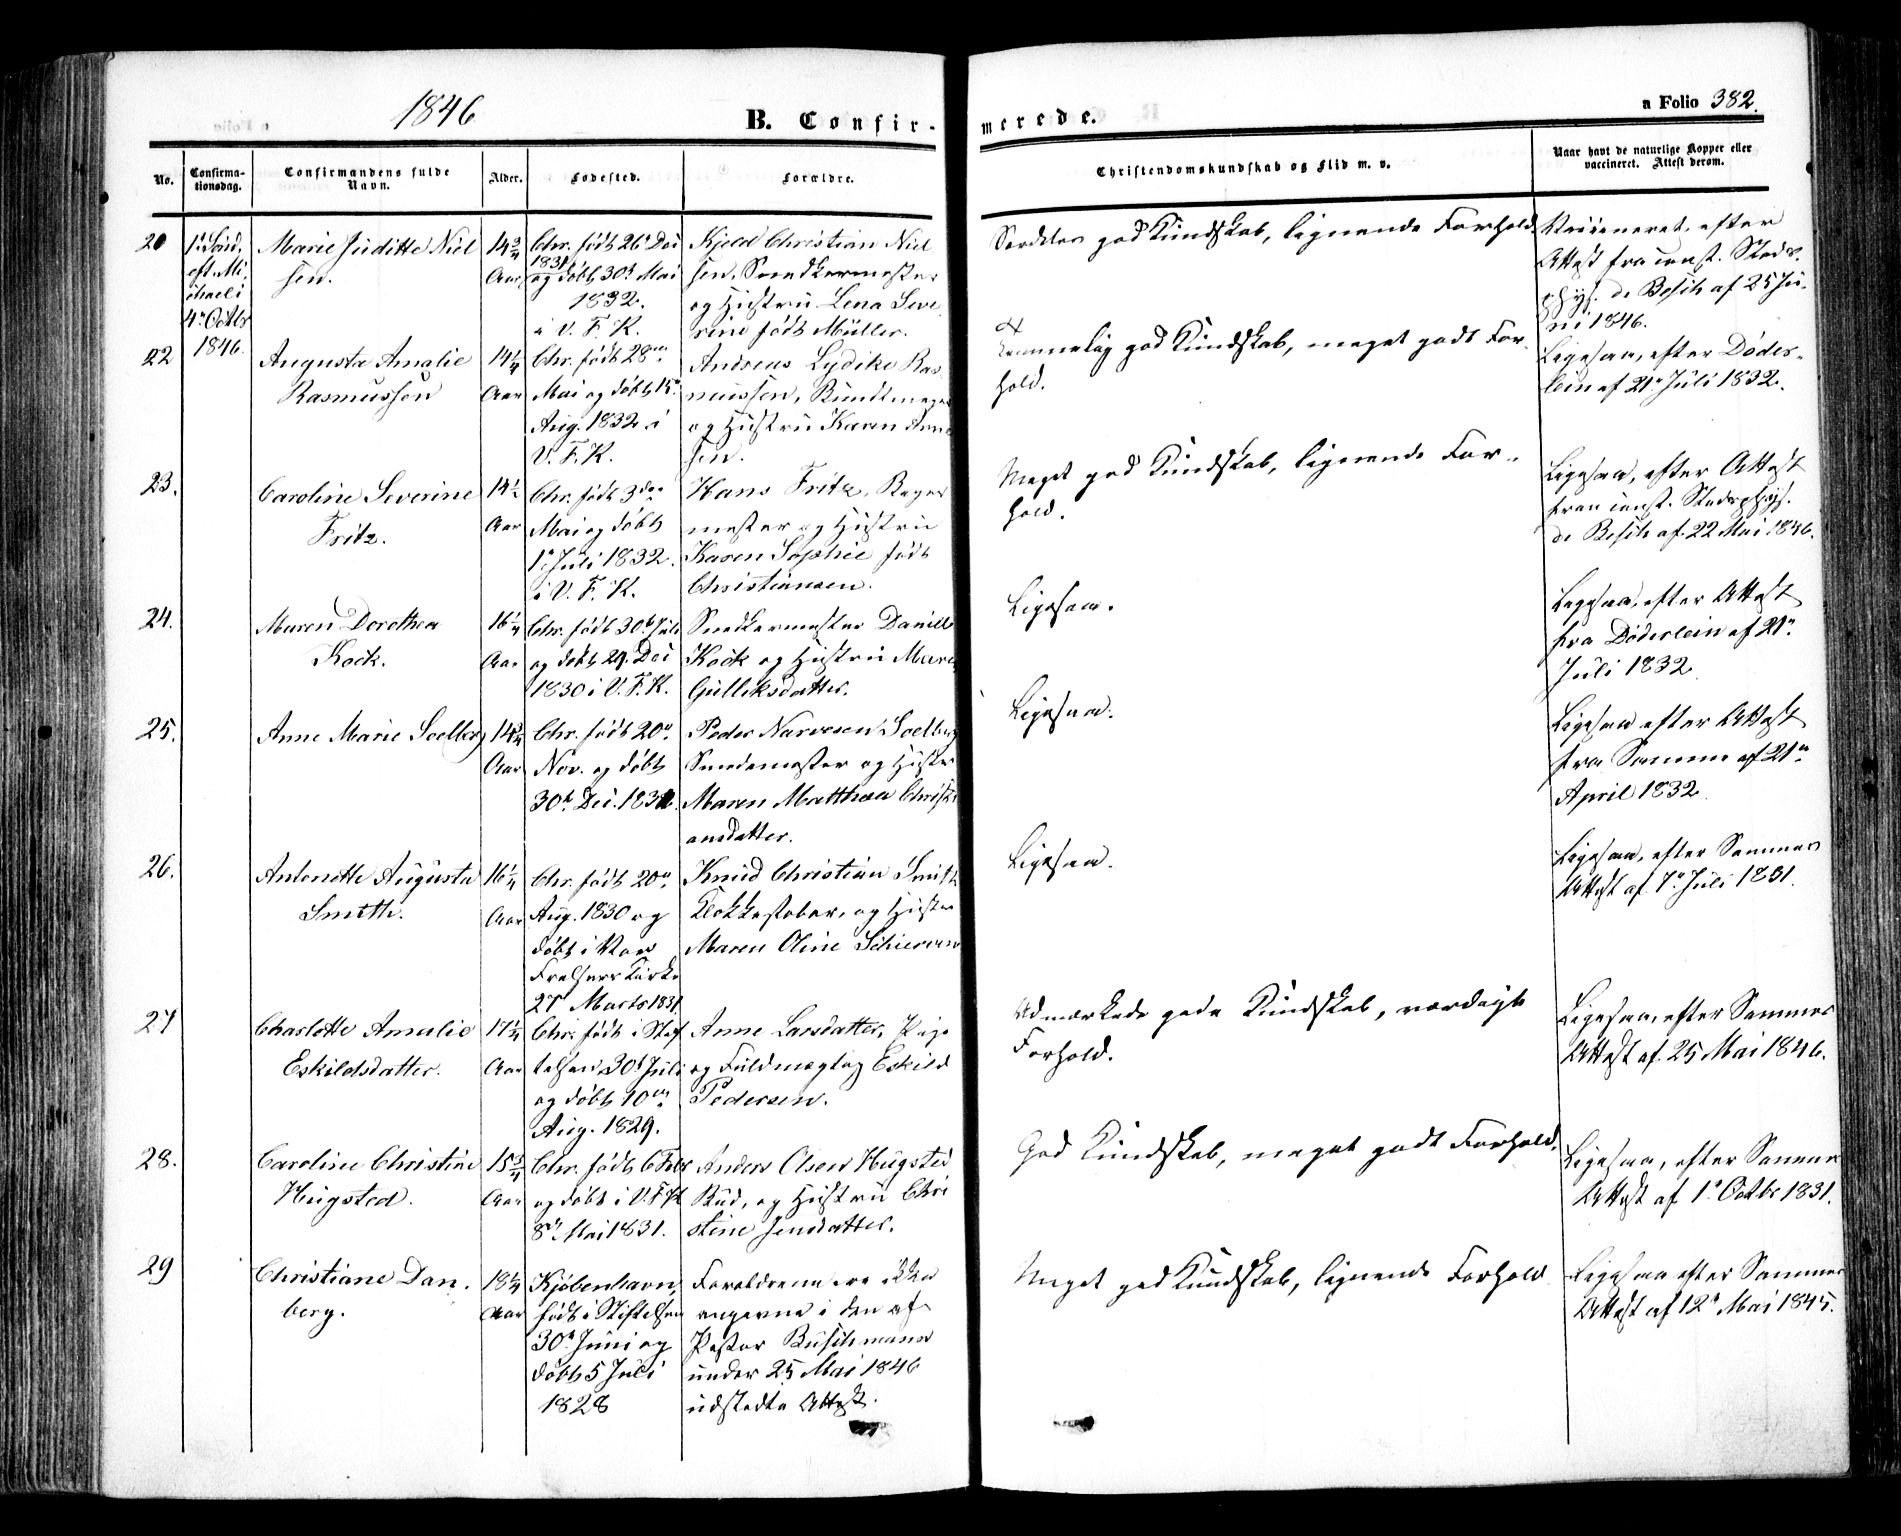 1846
B. Confir-
merede.
a Folio 382.
No.
Confirma-
tionsdag.
Confirmandens fulde
Navn.
Alder.
Fødested.
Forældre.
Christendomskundskab og Flid m. v.
Naar havt de naturlige Kopper eller
vaccineret. Attest derom.
20
1. Sønd.
eft. Mi-
chaeli
4de Octbr
1846.
Marie Juditte Niel
sen.
14 3/4
Aar
Chr. født 26de Dec
1831
og døbt 30te Mai
1832.
i V. F. K.
Kjeld Christian Niel
sen, Snedkermester
og Hustru Lena Seve
rine født Müller.
Særdeles god Kundskab, lignende Forhold
Vacineret, efter
Attest fra const. Stads-
phys. de Besche af 25 Ju-
ni 1846.
22
Augusta Amalie
Rasmussen
14 1/4
Aar
Chr. født 28de
Mai og døbt 15de
Aug. 1832 i
V. F. K.
Andreas Lydike Ras-
mussen, Bundtmager
og Hustru Karen Arne
sen.
temmelig god Kundskab, meget godt For-
hold.
Ligesaa, efter Døder-
lein af 21de Juli 1832.
23.
Caroline Severine
Fritz.
14 1/2
Aar
Chr. født 3die
Mai og døbt
1te Juli 1832.
i V. F. K.
Hans Fritz, Bager
mester og Hustru
Karen Sophie født
Christiansen.
Meget god Kundskab, lignende For-
hold.
Ligesaa, efter Attest
fra const. Stadsphys.
de Besche af 22 Mai 1846.
24.
Maren Dorothea
Kock.
16 1/4
Aar
Chr. født 30te Juli
og døbt 29. Dec
1830 i V. F. K.
Snedkermester Daniel
Kock og Hustru Maren
Gulliksdatter.
Ligesaa.
Ligesaa, efter Attest
fra Døderlein af 21de
Juli 1832
25.
Anne Marie Soelberg
14 3/4
Aar
Chr. født 20de
Nov. og døbt
30te Dec. 1831.
Peder Narvesen Soelberg
og Hustru
Maren Matthea Christi
ansdatter.
Ligesaa.
Ligesaa efter Attest
fra Samme af 21de
April 1832
26.
Antonette Augusta
Smith.
16 1/4
Aar
Chr. født 20de
Aug. 1830 og
døbt i Vor
Frelsers Kirke
27 Marts 1831
Knud Christian Smith
Klokkestøber, og Hustru
Maren Oline
Ligesaa.
Ligesaa, efter Sammes
Attest af 7de Juli 1831.
27
Charlotte Amalie
Eskildsdatter.
17 1/4
Aar
Chr. født i Stif
telsen 30te Juli
og døbt 10de
Aug. 1829.
Anne Larsdatter, Pige
og Fuldmægtig Eskild
Pedersen.
Udmærkede gode Kundskab, værdigt
Forhold.
Ligesaa, efter Sammes
Attest af 25 Mai 1846.
28.
Caroline Christine
Hugsted.
15 3/4
Aar
Chr. født 6 Febr
og døbt i V. F. K
8de Mai 1831.
Anders Olsen Hugsted
Bud, og Hustru Chri
stine Jensdatter.
God Kundskab, meget godt Forhold.
Ligesaa, efter Samme
Attest af 1te Octbr 1831.
29
Christiane Dan-
berg.
18 1/4
Aar
Kjøbenhavn,
født i Stiftelsen
30te Juni og
døbt 5 Juli
1828
Forældrene ere ikke
angivne i den af
Pastor Buschmann
under 25 Mai 1846
udstedte Attest.
Meget god Kundskab, lignende Forhold
Ligesaa efter Sammes
Attest af 12te Mai 1845.